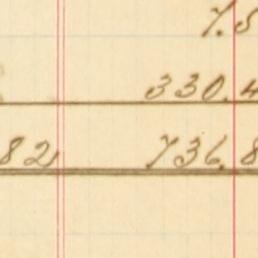 7.5
330.4
82 736.8